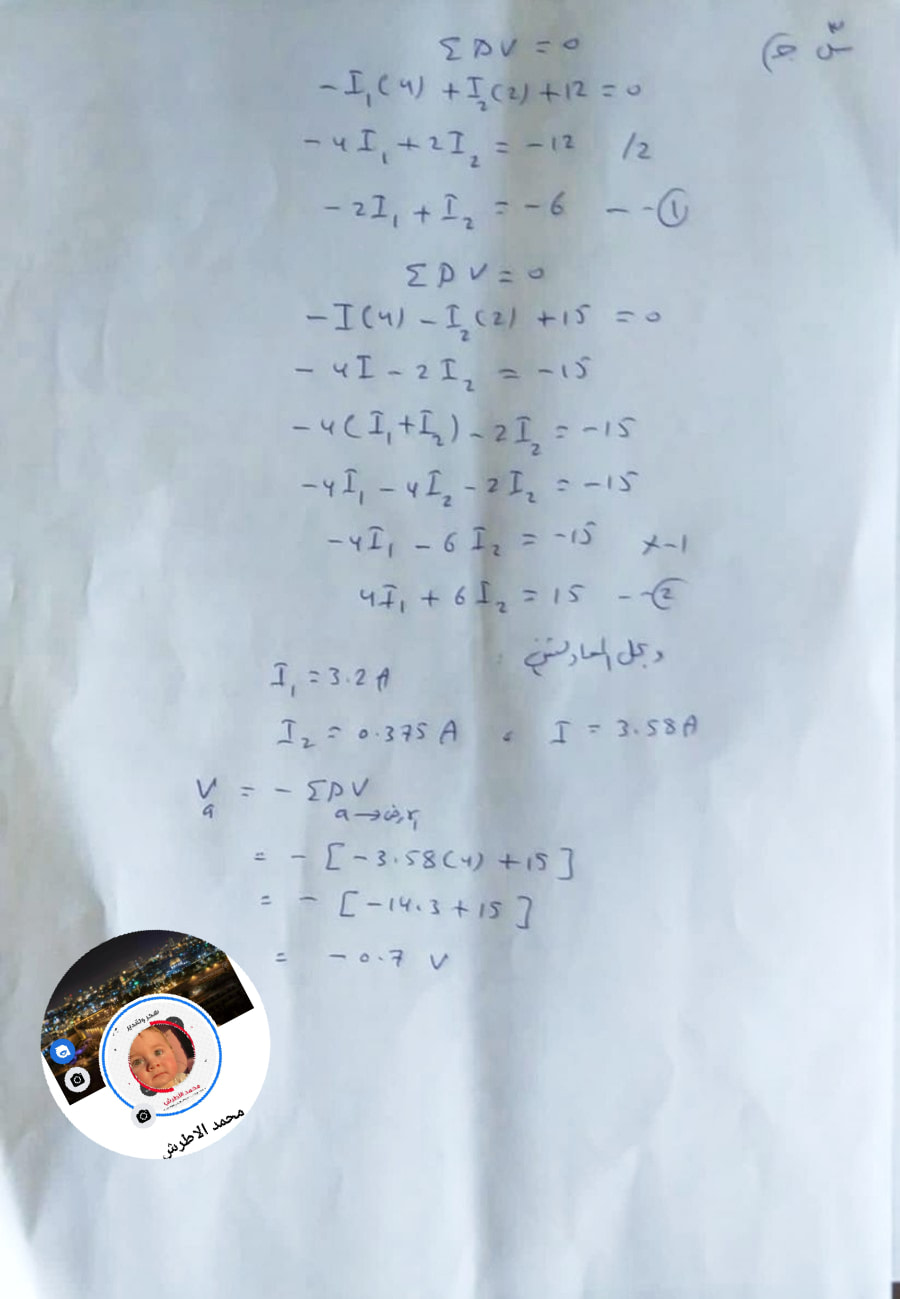 ΣΔV = 0
-I₁(4) + I₂(2) + 12 = 0
-4I₁ + 2I₂ = -12 /2
-2I₁ + I₂ = -6 --①
ΣΔV = 0
-I(4) - I₂(2) + 15 = 0
-4I - 2I₂ = -15
-4(I₁+I₂) - 2I₂ = -15
-4I₁ - 4I₂ - 2I₂ = -15
-4I₁ - 6I₂ = -15 ×-1
4I₁ + 6I₂ = 15 --②
وبحل المعادلتين :
I₁ = 3.2 A
I₂ = 0.375 A ، I = 3.58 A
Va = -ΣΔV
a→أرض
= -[-3.58(4) + 15]
= -[-14.3 + 15]
= -0.7 V
محمد الاطرش
محمد الاطرش